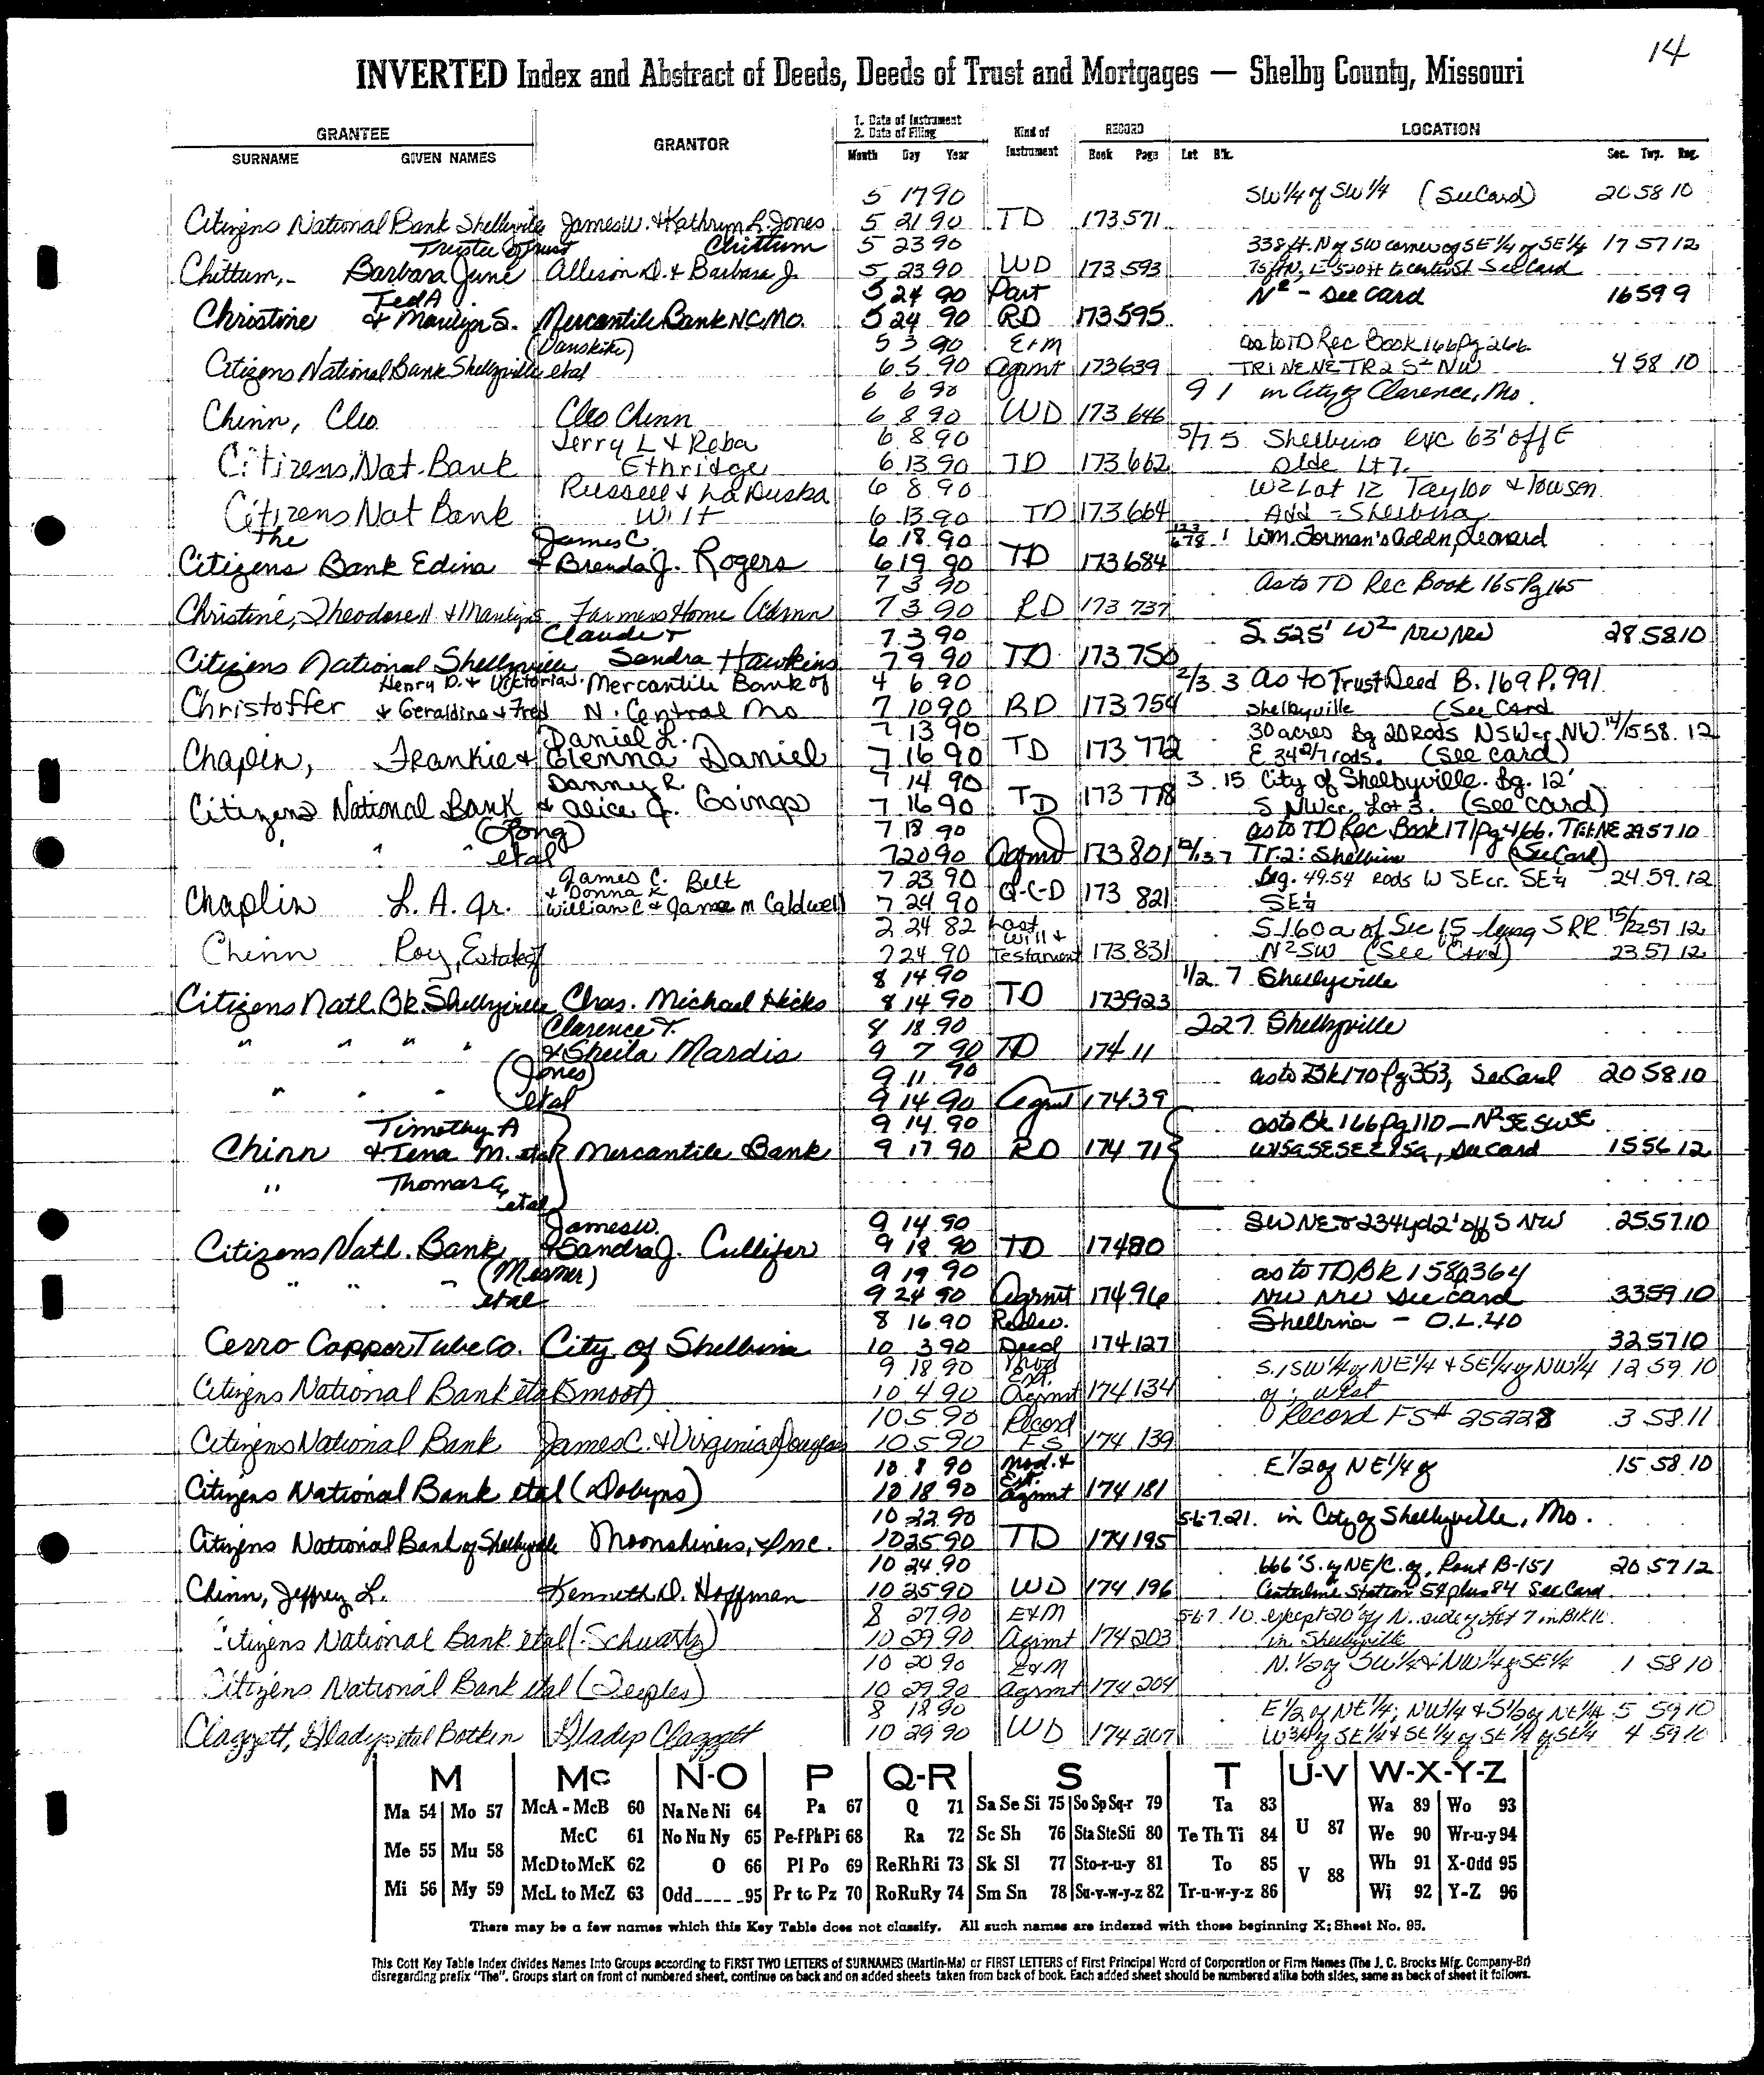 14
INVERTED Index and Abstract of Deeds, Deeds of Trust and Mortgages — Shelby County, Missouri
GRANTEE GRANTOR 1. Date of Instrument 2. Date of Filing Kind of Instrument RECORD LOCATION
SURNAME GIVEN NAMES Month Day Year Book Page Lot Blk. Sec. Twp. Rng.
5 17 90 SW 1/4 of SW 1/4 (See Card) 20 58 10
Citizens National Bank Shelbyville James W. & Kathryn L. Jones 5 21 90 TD 173 571
Trustee of Trust Chittum 5 23 90 338 ft. N of SW corner of SE 1/4 of SE 1/4 17 57 12
Chittum, Barbara June Allison D. & Barbara J 5 23 90 WD 173 593 See Card
Ted A 5 24 90 Part N2 - See card 16 59 9
Christine & Marilyn S. Mercantile Bank N.C. Mo. 5 24 90 RD 173 595
(Vanskike) 5 3 90 E & M as to TD Rec Book 166 Pg 266
Citizens National Bank Shelbyville etal 6 5 90 Agrmt 173 639 TR1 NE NE TR2 S2 NW 4 58 10
6 6 90 9 1 in City of Clarence, Mo.
Chinn, Cleo Cleo Chinn 6 8 90 WD 173 646
Jerry L & Reba 6 8 90 5/7 5 Shelbina exc 63' off E
Citizens Nat. Bank Ethridge 6 13 90 TD 173 662 side Lt 7.
Russell & LaDuska 6 8 90 W2 Lot 12 Taylor & Towson
Citizens Nat Bank Wilt 6 13 90 TD 173 664 Add - Shelbina
The James C. 6 18 90 123 678 1 Wm. Forman's addn, Leonard
Citizens Bank Edina & Brenda J. Rogers 6 19 90 TD 173 684
7 3 90 As to TD Rec Book 165 Pg 165
Christine, Theodore A & Marilyn S Farmers Home Admn 7 3 90 RD 173 737
Claude & 7 3 90 S 525' W2 NW NW 28 58 10
Citizens National Shelbyville Sandra Hawkins 7 9 90 TD 173 750
Henry D. & Victoria J. Mercantile Bank of 4 6 90 2/3 3 As to Trust Deed B. 169 P. 991
Christoffer & Geraldine & Fred N. Central Mo 7 10 90 RD 173 754 Shelbyville (See Card
Daniel L. 7 13 90 30 acres Bg 20 Rods N SW cr NW 14/15 58 12
Chaplin, Frankie & Glenna Daniel 7 16 90 TD 173 772 E 34 2/7 rods. (See card)
Danny R. 7 14 90 3 15 City of Shelbyville. Bg. 12'
Citizens National Bank & Alice J. Goings 7 16 90 TD 173 778 S NW cr. Lot 3. (See card)
(Long) 7 18 90 as to TD Rec Book 171 Pg 466. Tr 1: NE 29 57 10
" " " etal 7 20 90 Agrmt 173 801 12/13 7 Tr. 2: Shelbina (See Card)
James C. 7 23 90 Bg. 49.54 rods W SE cr. SE 1/4 24 59 12
& Donna K Belt
Chaplin L. A. Jr. William C & Janae M Caldwell 7 24 90 Q-C-D 173 821 SE 1/4
2 24 82 Last S 160 a of Sec 15 lying S RR 15/22 57 12
Chinn Roy, Estate of 7 24 90 Will & Testament 173 831 N2 SW (See Card) 23 57 12
8 14 90 1/2 7 Shelbyville
Citizens Natl. Bk. Shelbyville Chas. Michael Hicks 8 14 90 TD 173 923
Clarence T. 8 18 90 2 27 Shelbyville
" " " " & Sheila Mardis 9 7 90 TD 174 11
(Jones) 9 11 90 as to Bk 170 Pg 353, See Card 20 58 10
" " " etal 9 14 90 Agrmt 174 39
Timothy A 9 14 90 as to Bk 166 Pg 110 — N2 SE SW SE
Chinn & Tena M. etal Mercantile Bank 9 17 90 RD 174 71 W 15a SE SE E 85a, See card 15 56 12
" Thomas G, etal
James W. 9 14 90 SW NE & 234 yd 2' off S NW 25 57 10
Citizens Natl. Bank & Sandra J. Cullifer 9 18 90 TD 174 80
" " " (Mesmer) 9 19 90 as to TD Bk 158 p 364
etal 9 24 90 Agrmt 174 96 NW NW See card 33 59 10
8 16 90 Shelbina - O.L. 40
Cerro Copper Tube Co. City of Shelbina 10 3 90 Deed 174 127 32 57 10
9 18 90 Mod Ext. S. 1 SW 1/4 of NE 1/4 & SE 1/4 of NW 1/4 12 59 10
Citizens National Bank etal (Smoot) 10 4 90 Agrmt 174 134 of: West
10 5 90 Record Record FS# 25228 3 58 11
Citizens National Bank James C. & Virginia Douglas 10 5 90 FS 174 139
10 8 90 Mod. & E 1/2 of NE 1/4 of 15 58 10
Citizens National Bank etal (Dobyns) 10 18 90 Ext. Agrmt 174 181
10 22 90 5-6-7 21. in City of Shelbyville, Mo.
Citizens National Bank of Shelbyville Moonshiners, Inc. 10 25 90 TD 174 195
10 24 90 666' S. of NE/C. of, Rout B-151 20 57 12
Chinn, Jeffrey L. Kenneth D. Hoffman 10 25 90 WD 174 196 Centerline Station 54 plus 84 See Card
8 27 90 E & M 5-6-7 10 except 20' of N. side of Lot 7 in Blk 10
Citizens National Bank etal (Schwartz) 10 29 90 Agrmt 174 203 in Shelbyville
10 20 90 E & M N. 1/2 of SW 1/4 & NW 1/4 of SE 1/4 1 58 10
Citizens National Bank etal (Peeples) 10 29 90 Agrmt 174 204
8 18 90 E 1/2 of NE 1/4; NW 1/4 & S 1/2 of NE 1/4 5 59 10
Claggett, Gladys etal Botkin Gladys Claggett 10 29 90 WD 174 207 W 3/4 of SE 1/4 & SE 1/4 of SE 1/4 of SE 1/4 4 59 10
M Mc N-O P Q-R S T U-V W-X-Y-Z
Ma 54 Mo 57 McA - McB 60 Na Ne Ni 64 Pa 67 Q 71 Sa Se Si 75 So Sp Sq-r 79 Ta 83 U 87 Wa 89 Wo 93
Me 55 Mu 58 McC 61 No Nu Ny 65 Pe-f Ph Pi 68 Ra 72 Sc Sh 76 Sta Ste Sti 80 Te Th Ti 84 We 90 Wr-u-y 94
McD to McK 62 O 66 Pl Po 69 Re Rh Ri 73 Sk Sl 77 Sto-r-u-y 81 To 85 V 88 Wh 91 X-Odd 95
Mi 56 My 59 McL to McZ 63 Odd---- -95 Pr to Pz 70 Ro Ru Ry 74 Sm Sn 78 Su-v-w-y-z 82 Tr-u-w-y-z 86 Wi 92 Y-Z 96
There may be a few names which this Key Table does not classify. All such names are indexed with those beginning X; Sheet No. 95.
This Cott Key Table Index divides Names Into Groups according to FIRST TWO LETTERS of SURNAMES (Martin-Ma) or FIRST LETTERS of First Principal Word of Corporation or Firm Names (The J. C. Brooks Mfg. Company-Br)
disregarding prefix "The". Groups start on front of numbered sheet, continue on back and on added sheets taken from back of book. Each added sheet should be numbered alike both sides, same as back of sheet it follows.